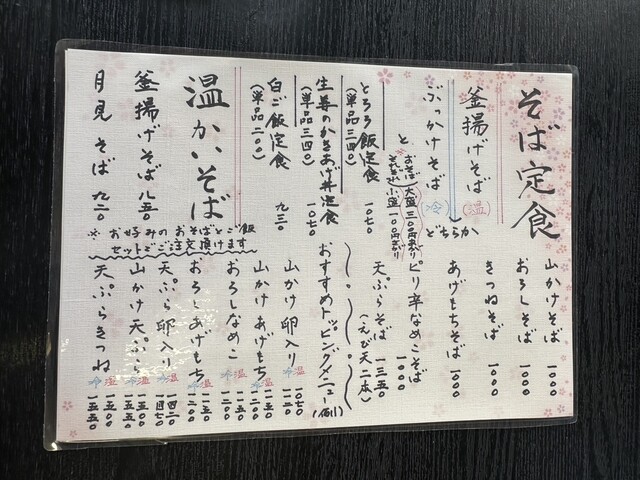 そば定食
釜揚げそば(温)
ぶっかけそば(冷)
どちらか
と
おそば大盛三〇〇円まし
それぞれ小盛一〇〇円まし
とろろ飯定食 一〇七〇
(単品三四〇)
生姜のかきあげ丼定食 一〇七〇
(単品三四〇)
白ご飯定食 九三〇
(単品二〇〇)
温かいそば
釜揚げそば 八五〇
月見そば 九二〇
※お好みのおそばとご飯
セットでご注文頂けます
山かけそば 一〇〇〇
おろしそば 一〇〇〇
きつねそば 一〇〇〇
あげもちそば 一〇〇〇
ピリ辛なめこそば 一〇〇〇
天ぷらそば 一三五〇
(えび天二本)
おすすめトッピングメニュー(例)
山かけ卵入り 一〇七〇
山かけあげもち
おろしなめこ 温冷
おろしあげもち 温冷
天ぷら卵入り 温冷
山かけ天ぷら 温冷
天ぷらきつね 温冷